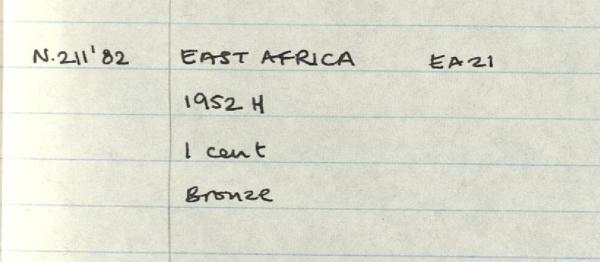 N.211'82 EAST AFRICA EA21
1952 H
1 cent
Bronze